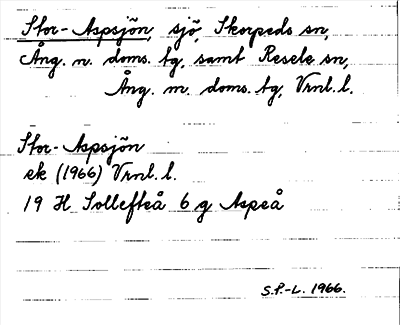 Stor-Aspsjön, sjö, Skorpeds sn,
Ång. n. doms. tg, samt Resele sn,
Ång. m. doms. tg, Vrnl. l.
Stor-Aspsjön
ek (1966) Vrnl. l.
19 H Sollefteå 6 g Aspeå
S.P.-L. 1966.